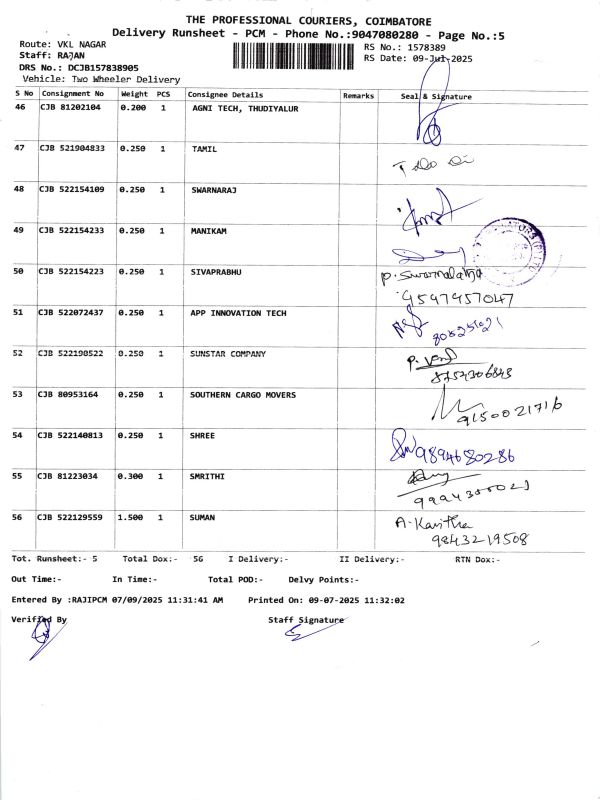 THE PROFESSIONAL COURIERS, COIMBATORE
Delivery Runsheet - PCM - Phone No.:9047080280 - Page No.:5
Route: VKL NAGAR
RS No.: 1578389
Staff: RAJAN
RS Date: 09-Jul-2025
DRS No.: DCJB157838905
Vehicle: Two Wheeler Delivery
S No Consignment No Weight PCS Consignee Details Remarks Seal & Signature
46 CJB 81202104 0.200 1 AGNI TECH, THUDIYALUR
47 CJB 521904833 0.250 1 TAMIL
48 CJB 522154109 0.250 1 SWARNARAJ
49 CJB 522154233 0.250 1 MANIKAM
50 CJB 522154223 0.250 1 SIVAPRABHU P. Swarnalatha
9597957047
51 CJB 522072437 0.250 1 APP INNOVATION TECH
52 CJB 522190522 0.250 1 SUNSTAR COMPANY
8754306843
53 CJB 80953164 0.250 1 SOUTHERN CARGO MOVERS
9150021716
54 CJB 522140813 0.250 1 SHREE 9894680286
55 CJB 81223034 0.300 1 SMRITHI
56 CJB 522129559 1.500 1 SUMAN A. Kavitha
9843219508
Tot. Runsheet:- 5 Total Dox:- 56 I Delivery:- II Delivery:- RTN Dox:-
Out Time:- In Time:- Total POD:- Delvy Points:-
Entered By :RAJIPCM 07/09/2025 11:31:41 AM Printed On: 09-07-2025 11:32:02
Verified By Staff Signature